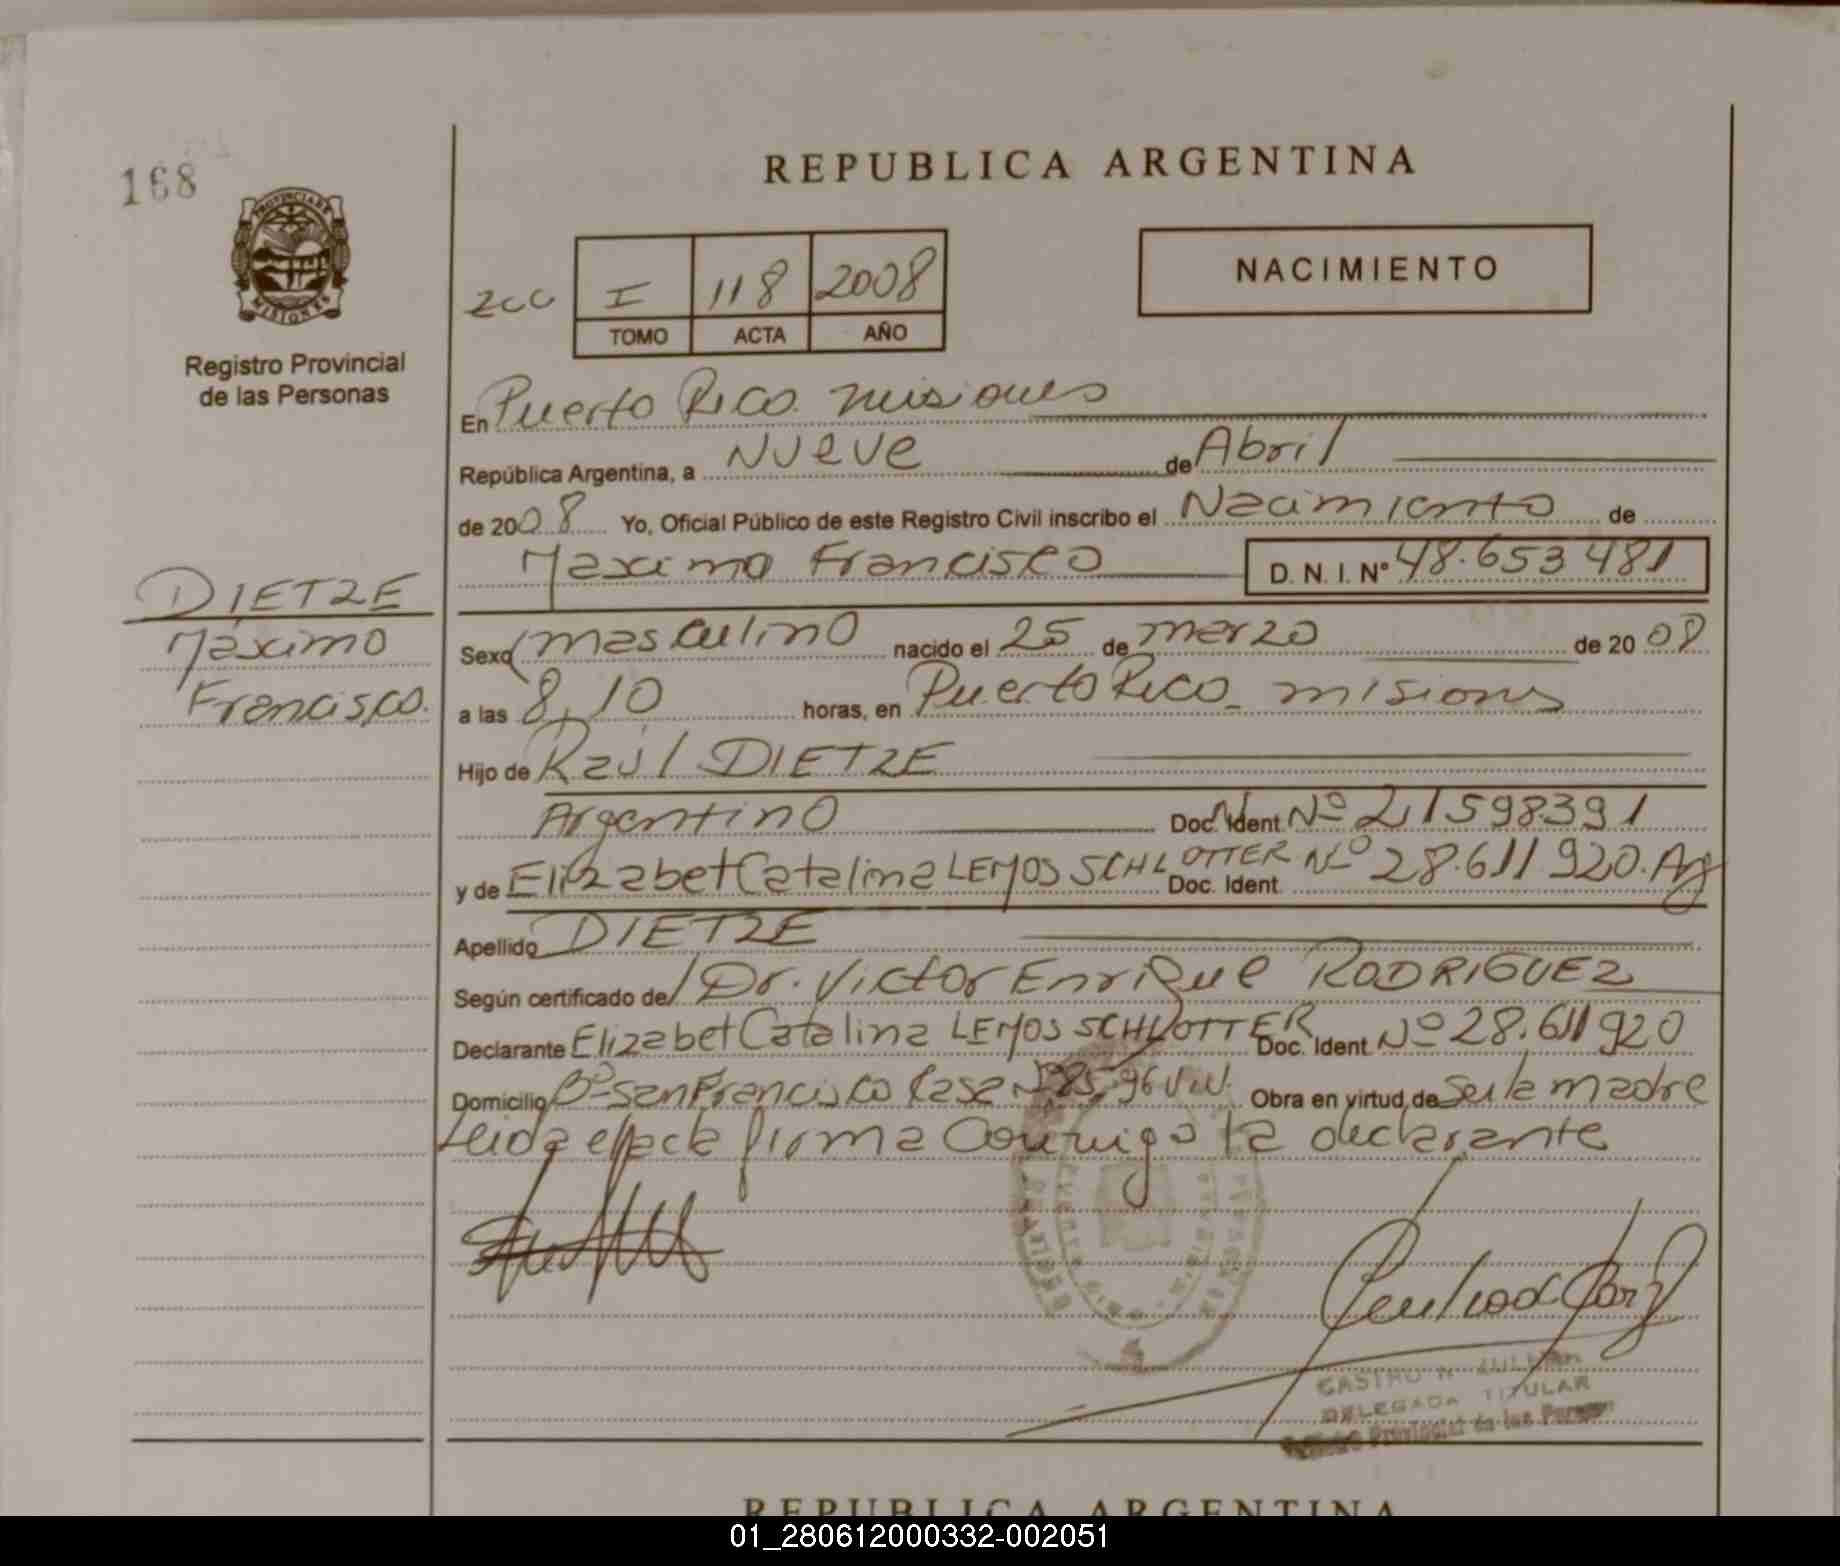 168
REPUBLICA ARGENTINA
PROVINCIA DE
MISIONES
Registro Provincial
de las Personas
200 I 118 2008
TOMO ACTA AÑO
NACIMIENTO
En Puerto Rico. Misiones
República Argentina, a Nueve de Abril
de 2008 Yo, Oficial Público de este Registro Civil inscribo el Nacimiento de
Maximo Francisco D. N. I. Nº 48.653 481
DIETZE
Máximo
Francisco.
Sexo masculino nacido el 25 de marzo de 2008
a las 8,10 horas, en Puerto Rico_ misiones
Hijo de Raúl DIETZE
Argentino Doc. Ident. Nº 21598391
y de Elizabet Catalina LEMOS SCHLOTTER Doc. Ident. Nº 28.611 920. Arg
Apellido DIETZE
Según certificado de Dr. Victor Enrique RODRIGUEZ
Declarante Elizabet Catalina LEMOS SCHLOTTER Doc. Ident. Nº 28.611 920
Domicilio Bº San Francisco Casa 96 Viv. Obra en virtud de Ser la madre
Leida el acta firma Conmigo la declarante
DELEGADA TITULAR
Provincial de las Personas
REPUBLICA ARGENTINA
01_280612000332-002051